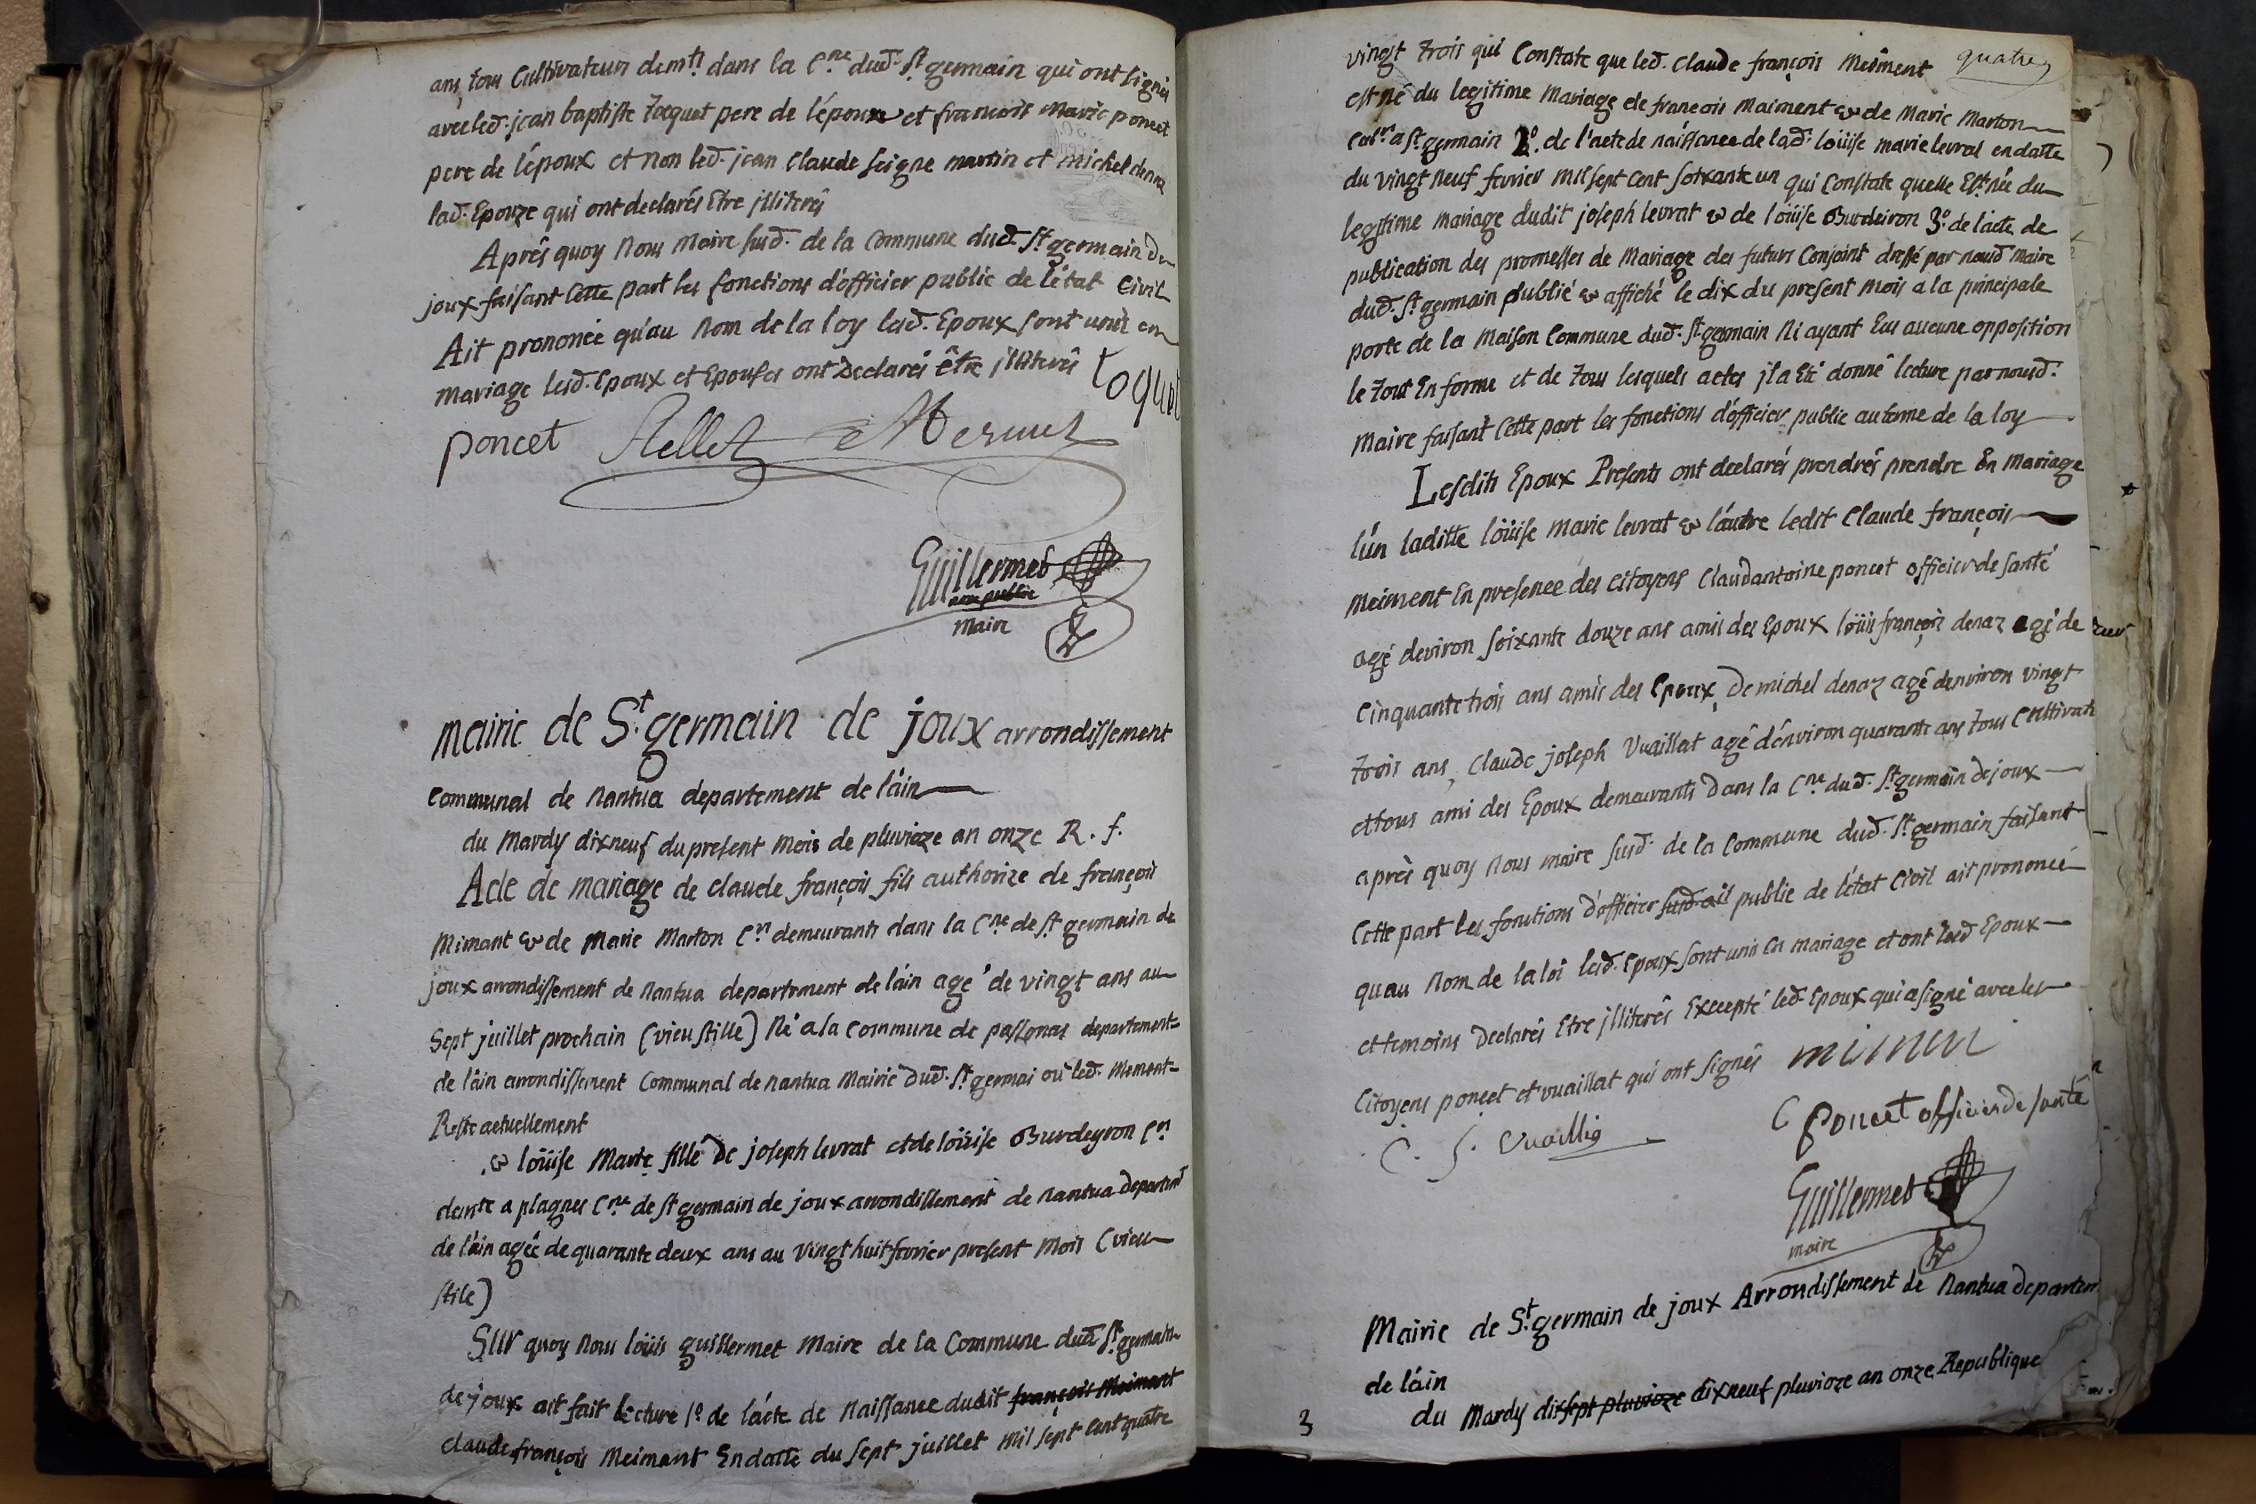 ans, tous Cultivateurs demts dans la Cne dud. St germain qui ont signés
avec led. jean baptiste Jocquet pere de l'épouze et francois Marie poncet
pere de l'époux et non led. jean Claude seigne martin et michel denaz
lad. Epouze qui ont declarés Etre jlliterés
Après quoy Nous Maire susd. de la Commune dud. St germain de
joux faisant Cette part les fonctions d'officier public de l'état Civil
Ait prononcée qu'au Nom de la loy lesd. Epoux sont unis en
mariage lesd. Epoux et Epouses ont Declarés être jlliterés
toquet
poncet
Guillermet
maire
mairie de St. germain de joux arrondissement
communal de Nantua departement de l'ain
du Mardy dixneuf du present Mois de pluvioze an onze R. f.
Acte de mariage de claude françois fils authorize de françois
Mimant & de Marie Marton Crs demeurants dans la Cne de St germain de
joux arrondissement de Nantua departement de l'ain agé de vingt ans au
Sept juillet prochain (vieu stille) Né a la Commune de passonas departement
de l'ain arrondissement Communal de Nantua Mairie dud. St germai ou led. Mement
Reste actuellement
& loüise Marie fille de joseph levrat et de loüise Burdeyron Crs
demte a plagnes Cne de St germain de joux arrondissement de Nantua departmt
de l'ain agée de quarante deux ans au vingt huit fevrier present Mois (vieu
stile)
Sur quoy Nous loüis guillermet Maire de la Commune dud. St germain
de joux ait fait lecture 1o de l'acte de Naissance dudit françois Meimant
claude françois Meimant En datte du sept juillet Mil sept cent quatre
quatre
vingt trois qui Constate que led. Claude françois Meiment
est né du legitime Mariage de francois Maiment & de Marie Marton
Culrs a St germain 2o. de l'acte de naissance de lad. loüise marie levrat en datte
du vingt neuf fevrier Mil sept cent soixante un qui Constate quelle Est née du
legitime mariage dudit joseph levrat & de loüise Burdeiron 3o. de l'acte de
publication des promesses de Mariage des futurs Conjoint dressé par nousd Maire
dud. St germain publié & affiché le dix du present Mois a la principale
porte de la Maison Commune dud. St germain Ni ayant Eus aucune opposition
le tout En forme et de tous lesquels actes jl a Eté donné lecture par nousd.
Maire faisant Cette part les fonctions d'officier public au terme de la loy
Lesdits Epoux Presents ont declarés prendrés prendre En Mariage
l'un laditte loüise Marie levrat & l'autre ledit Claude françois
Meiment En presence des Citoyens Claudantoine poncet officier de santé
agé deviron soixante douze ans amis des Epoux loüis françois denaz agé de
Cinquante trois ans amis des Epoux, De michel denaz agé denviron vingt
trois ans, Claude joseph Vuaillat agé d'environ quarante ans tous Cultivat
et tous ami des Epoux demeurants Dans la Cne dud. St germain de joux
après quoy Nous maire susd. de la Commune dud. St germain faisant
Cette part les fonctions d'officier susd. ait public de l'état Civil ait prononcé
quau Nom de la loi lesd. Epoux sont unis En mariage et ont lesd Epoux
et temoins Declarés Etre jlliterés Excepté led. Epoux qui a signé avec les
Citoyens poncet et vuaillat qui ont signés
C poncet officier de santé
C. J.
Guillermet
maire
Mairie de St. germain de joux Arrondissement de Nantua departem
de l'ain
du Mardy dixsept pluvioze dixneuf pluvioze an onze Republique
3